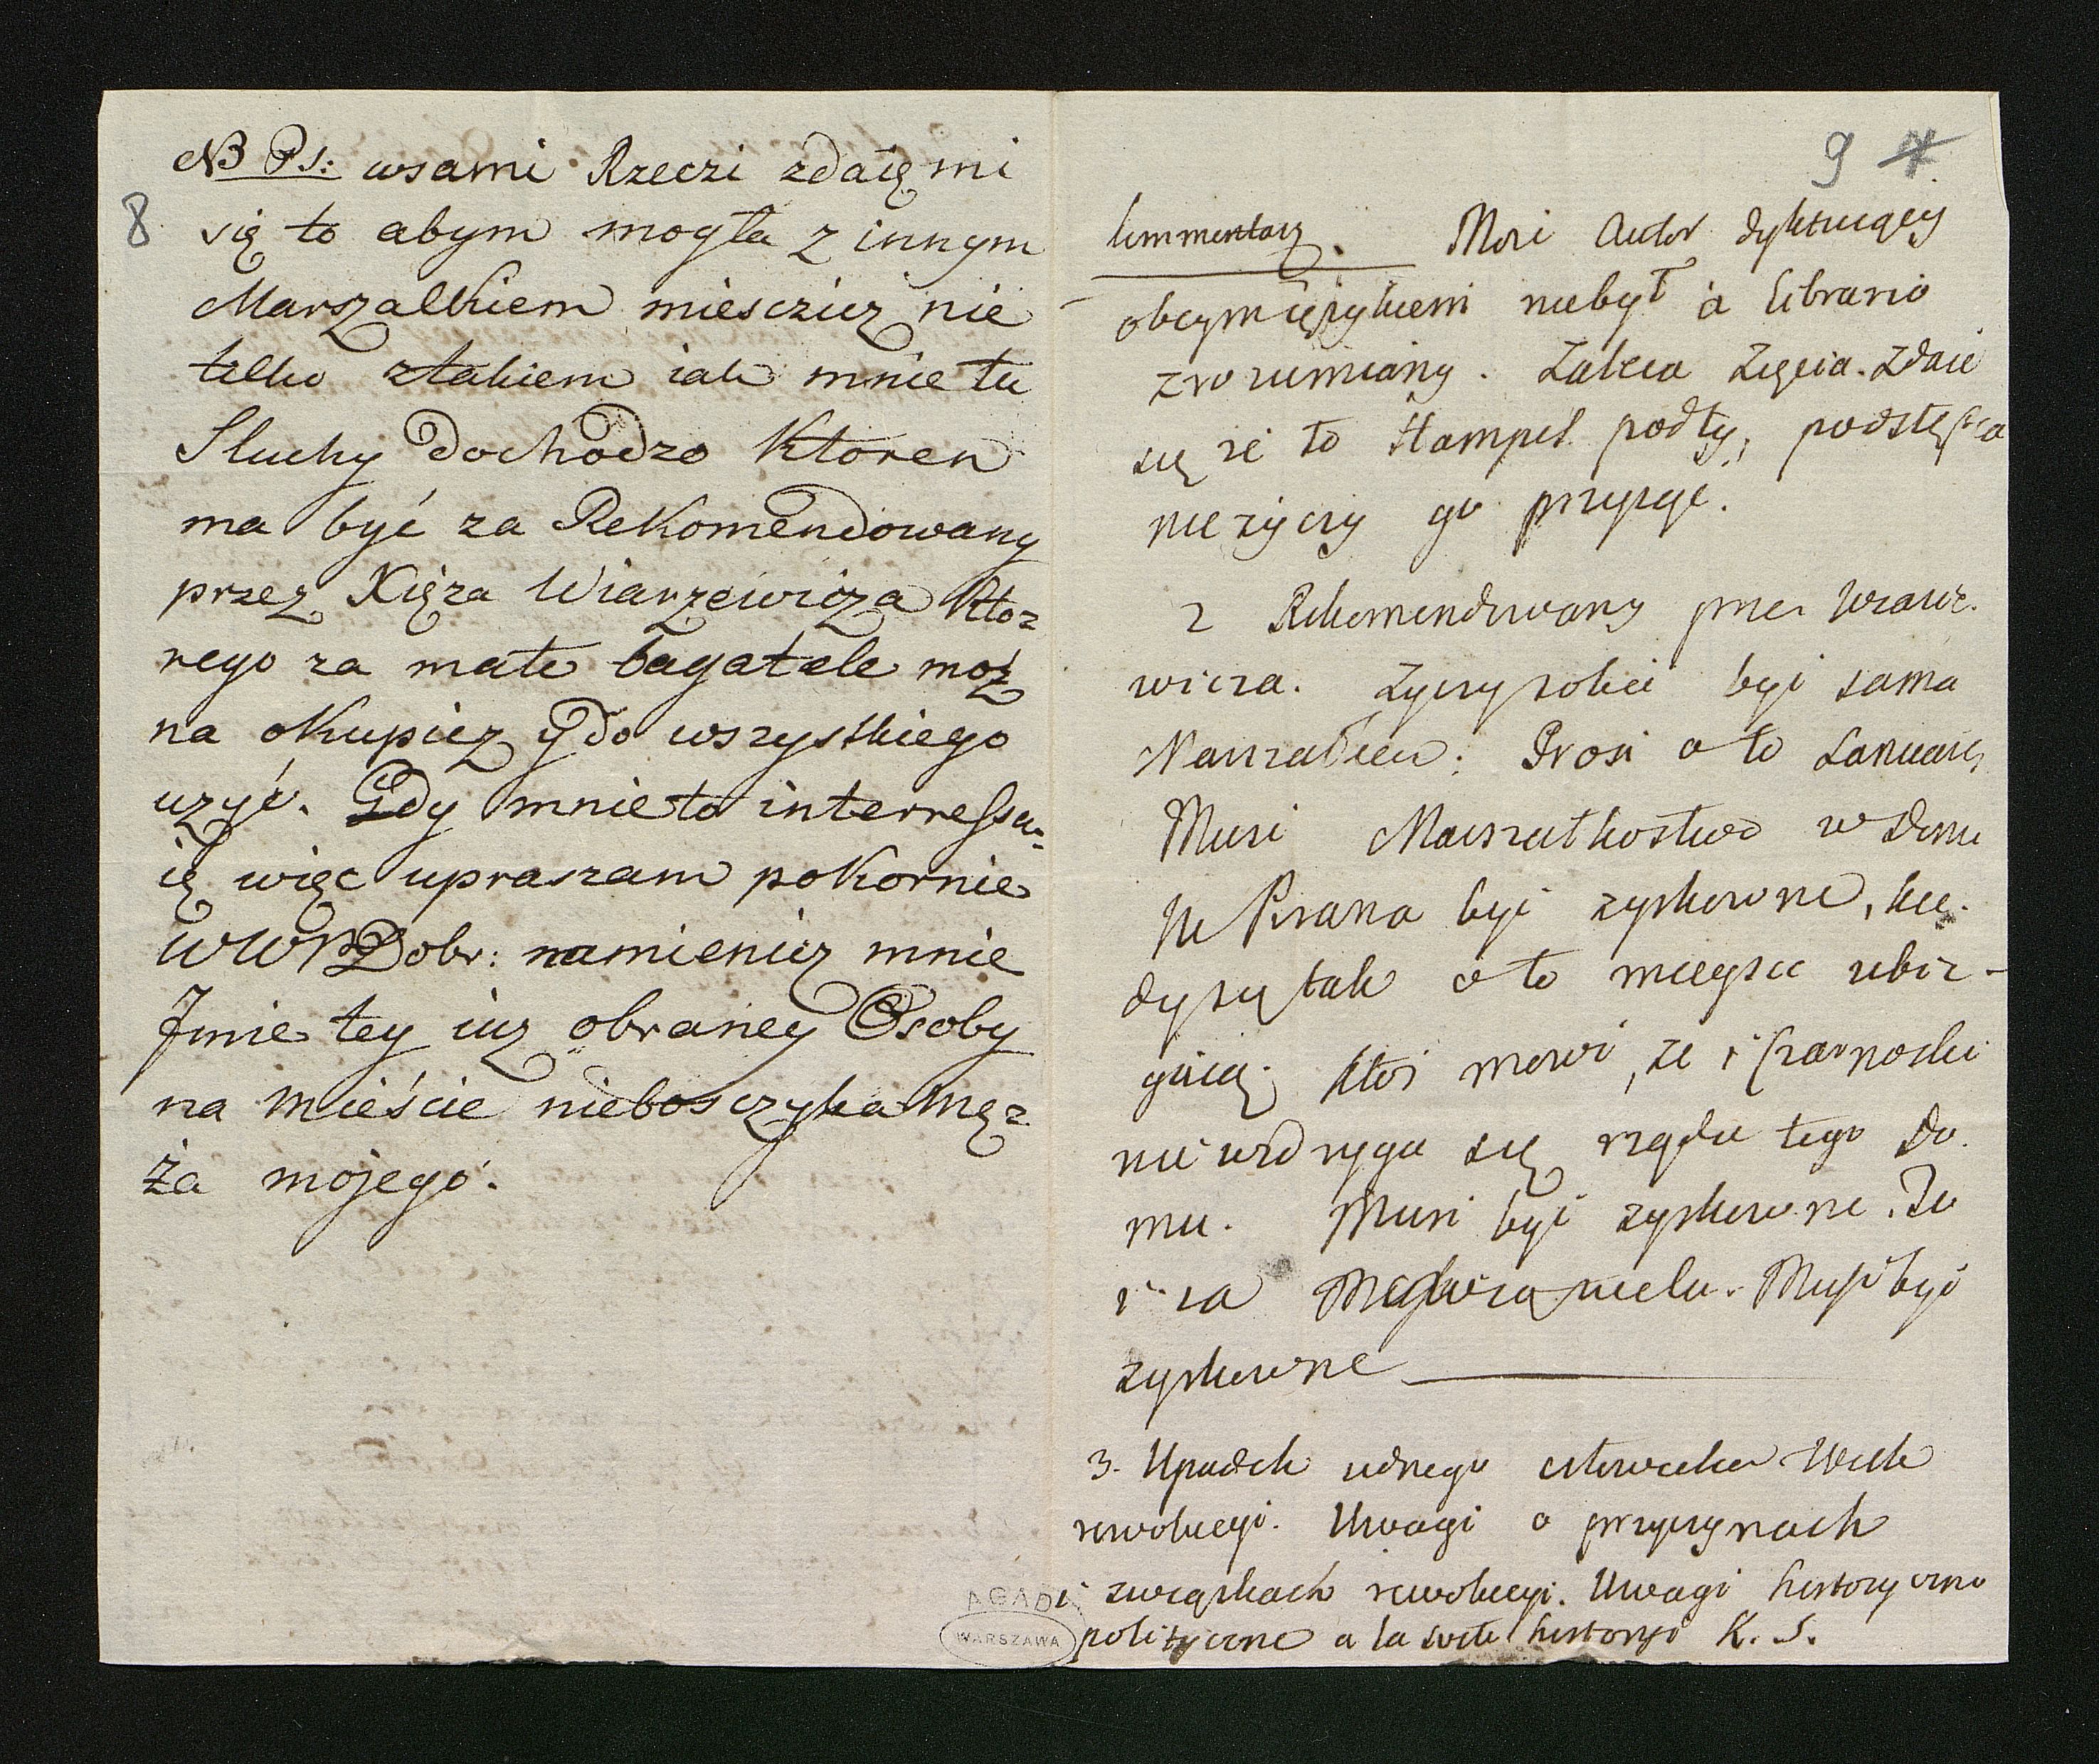 NB Ps: wsami Rzeczi zdaię mi
8. się to abym mogła z innym
Marszalkiem miesczicz nie
telko ztakiem iak mnie tu
Sluchy dochodzo Ktoren
ma być za Rekomendowany
przez Xięza Wiarzewicza Kto=
rego za małe bagatele moż
na okupicz y do wszystkiego
uzyć. Gdy mnie to interressu=
ię więc upraszam pokornie
WWP Dobr: namienicz mnie
Jmie tey iuz obraney Osoby
na mieście nieboszczyka mę=
ża mojego.
9
kommentarz. Mosi Autor dyktuiący
obcym ięzykiem niebył a librario
zrozumiany. Zięcia. Zdaie
się że to Stampel podły, podstęp
nie życzy go przyjąć.
2 Rekomendowany przez Wiarze
wicza. Życzy sobie być sama
Marszalkiem: Prosi o to
Musi Marszałkostwo w domu
być zyskowne, kie
dy się tak o to mieysce ubie-
gaią. Ktoś mowi, że i Czarnocki
nie wzdryga się rządu tego do
mu. Musi być zyskowne. To
i za wielu. Musi być
zyskowne
3. Upadek iednego człowieka Wiek
rewolucyi. Uwagi o przyczynach
i związkach rewolucyi. Uwagi historyczno
polityczne a la suite historyi K. S.
AGAD
WARSZAWA